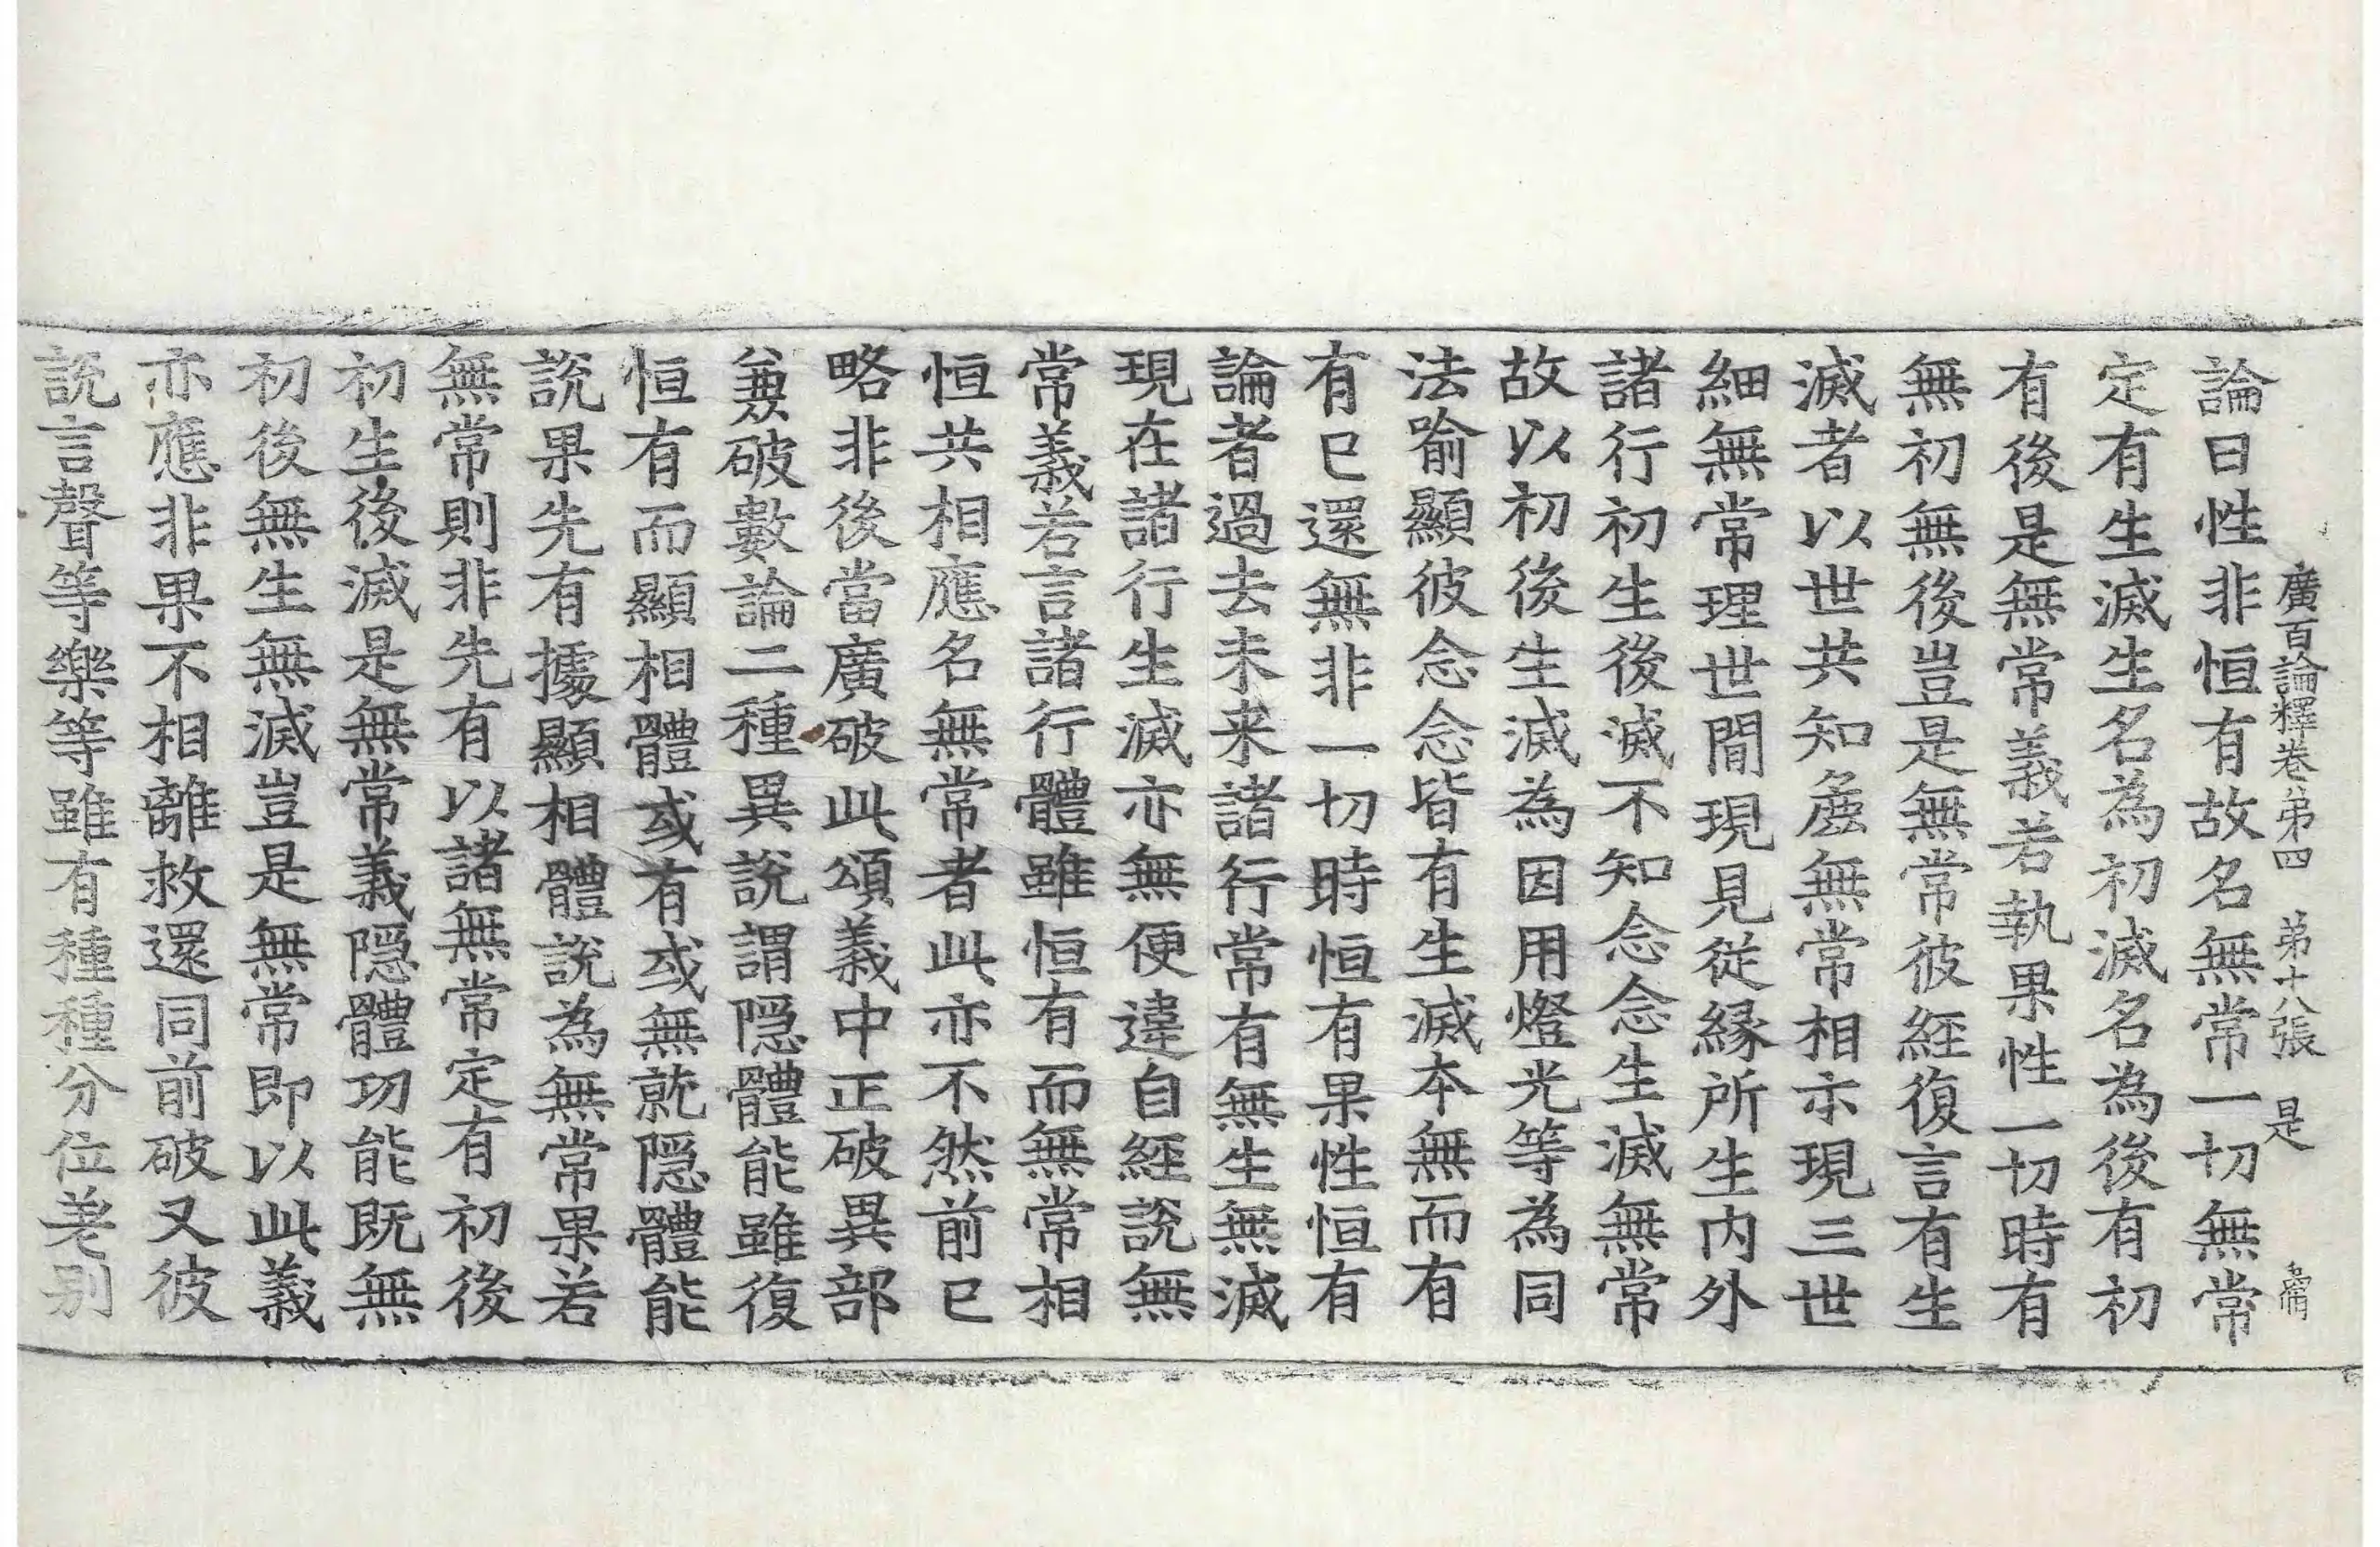 廣百論釋卷第四 第十八張 是
論曰性非恒有故名無常一切無常
定有生滅生名為初滅名為後有初
有後是無常義若執果性一切時有
無初無後豈是無常彼經復言有生
滅者以世共知麁無常相示現三世
細無常理世間現見從緣所生內外
諸行初生後滅不知念念生滅無常
故以初後生滅為因用燈光等為同
法喻顯彼念念皆有生滅本無而有
有已還無非一切時恒有果性恒有
論者過去未来諸行常有無生無滅
現在諸行生滅亦無便違自經說無
常義若言諸行體雖恒有而無常相
恒共相應名無常者此亦不然前已
略非後當廣破此頌義中正破異部
兼破數論二種異說謂隱體能雖復
恒有而顯相體或有或無就隱體能
說果先有據顯相體說為無常果若
無常則非先有以諸無常定有初後
初生後滅是無常義隱體功能既無
初後無生無滅豈是無常即以此義
亦應非果不相離救還同前破又彼
說言聲等樂等雖有種種分位差別